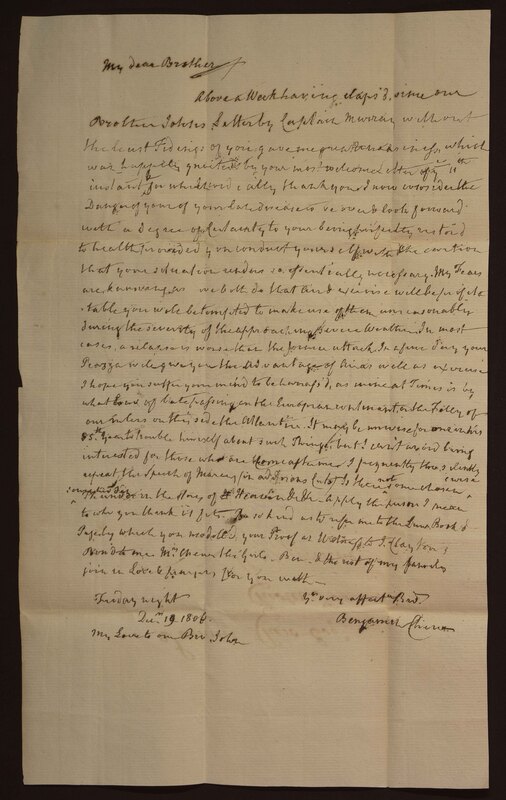 My dear Brother
Above a Week having elaps'd, since our
Brother Johns Letter by Captain Murray without
the least Tidings of you gave me great uneasiness, which
was happily by your most welcome letter of y 11th
instant for which I cordially thank you I now consider the
Danger of your late disease is over & look forward
with a Degree of certainty to your being perfectly restored
to health provided you conduct yourself with the caution
that your situation renders so essentially necessary. My Fears
are knowing as we both do that Air & exercise will be profi
table you will be tempted to make use of them unreasonably
during the severity of the approaching severe Weather. In most
cases, a relapse is worse than the former attack. In a fine day your
Piazza will give you the Advantage of Air as well as exercise
I hope you suffer your mind to be as mine at Times is by
what is of late passing on the European continent, or the Folly of
our rulers on this side the Atlantic. It may be unwise for one in his
85th year to trouble himself about such Things, but I can't avoid being
interested for those who are to come after me. I frequently
repeat the Speech of Marcus in Addisons Cato Is there not some chosen curse
in the Stores of Heaven &c &c - Apply the person I mean
to who you think it fits. Be so kind as to refer me to the Book &
Page by which you your as to J. Clayton &
send to me. Mrs the Girls - Ben. & the rest of my Family
join in Love & prayers for you with -
Friday night
Decr 19 1806.
Yr very affect Bro.
Benjamin
My Love to our Bro John